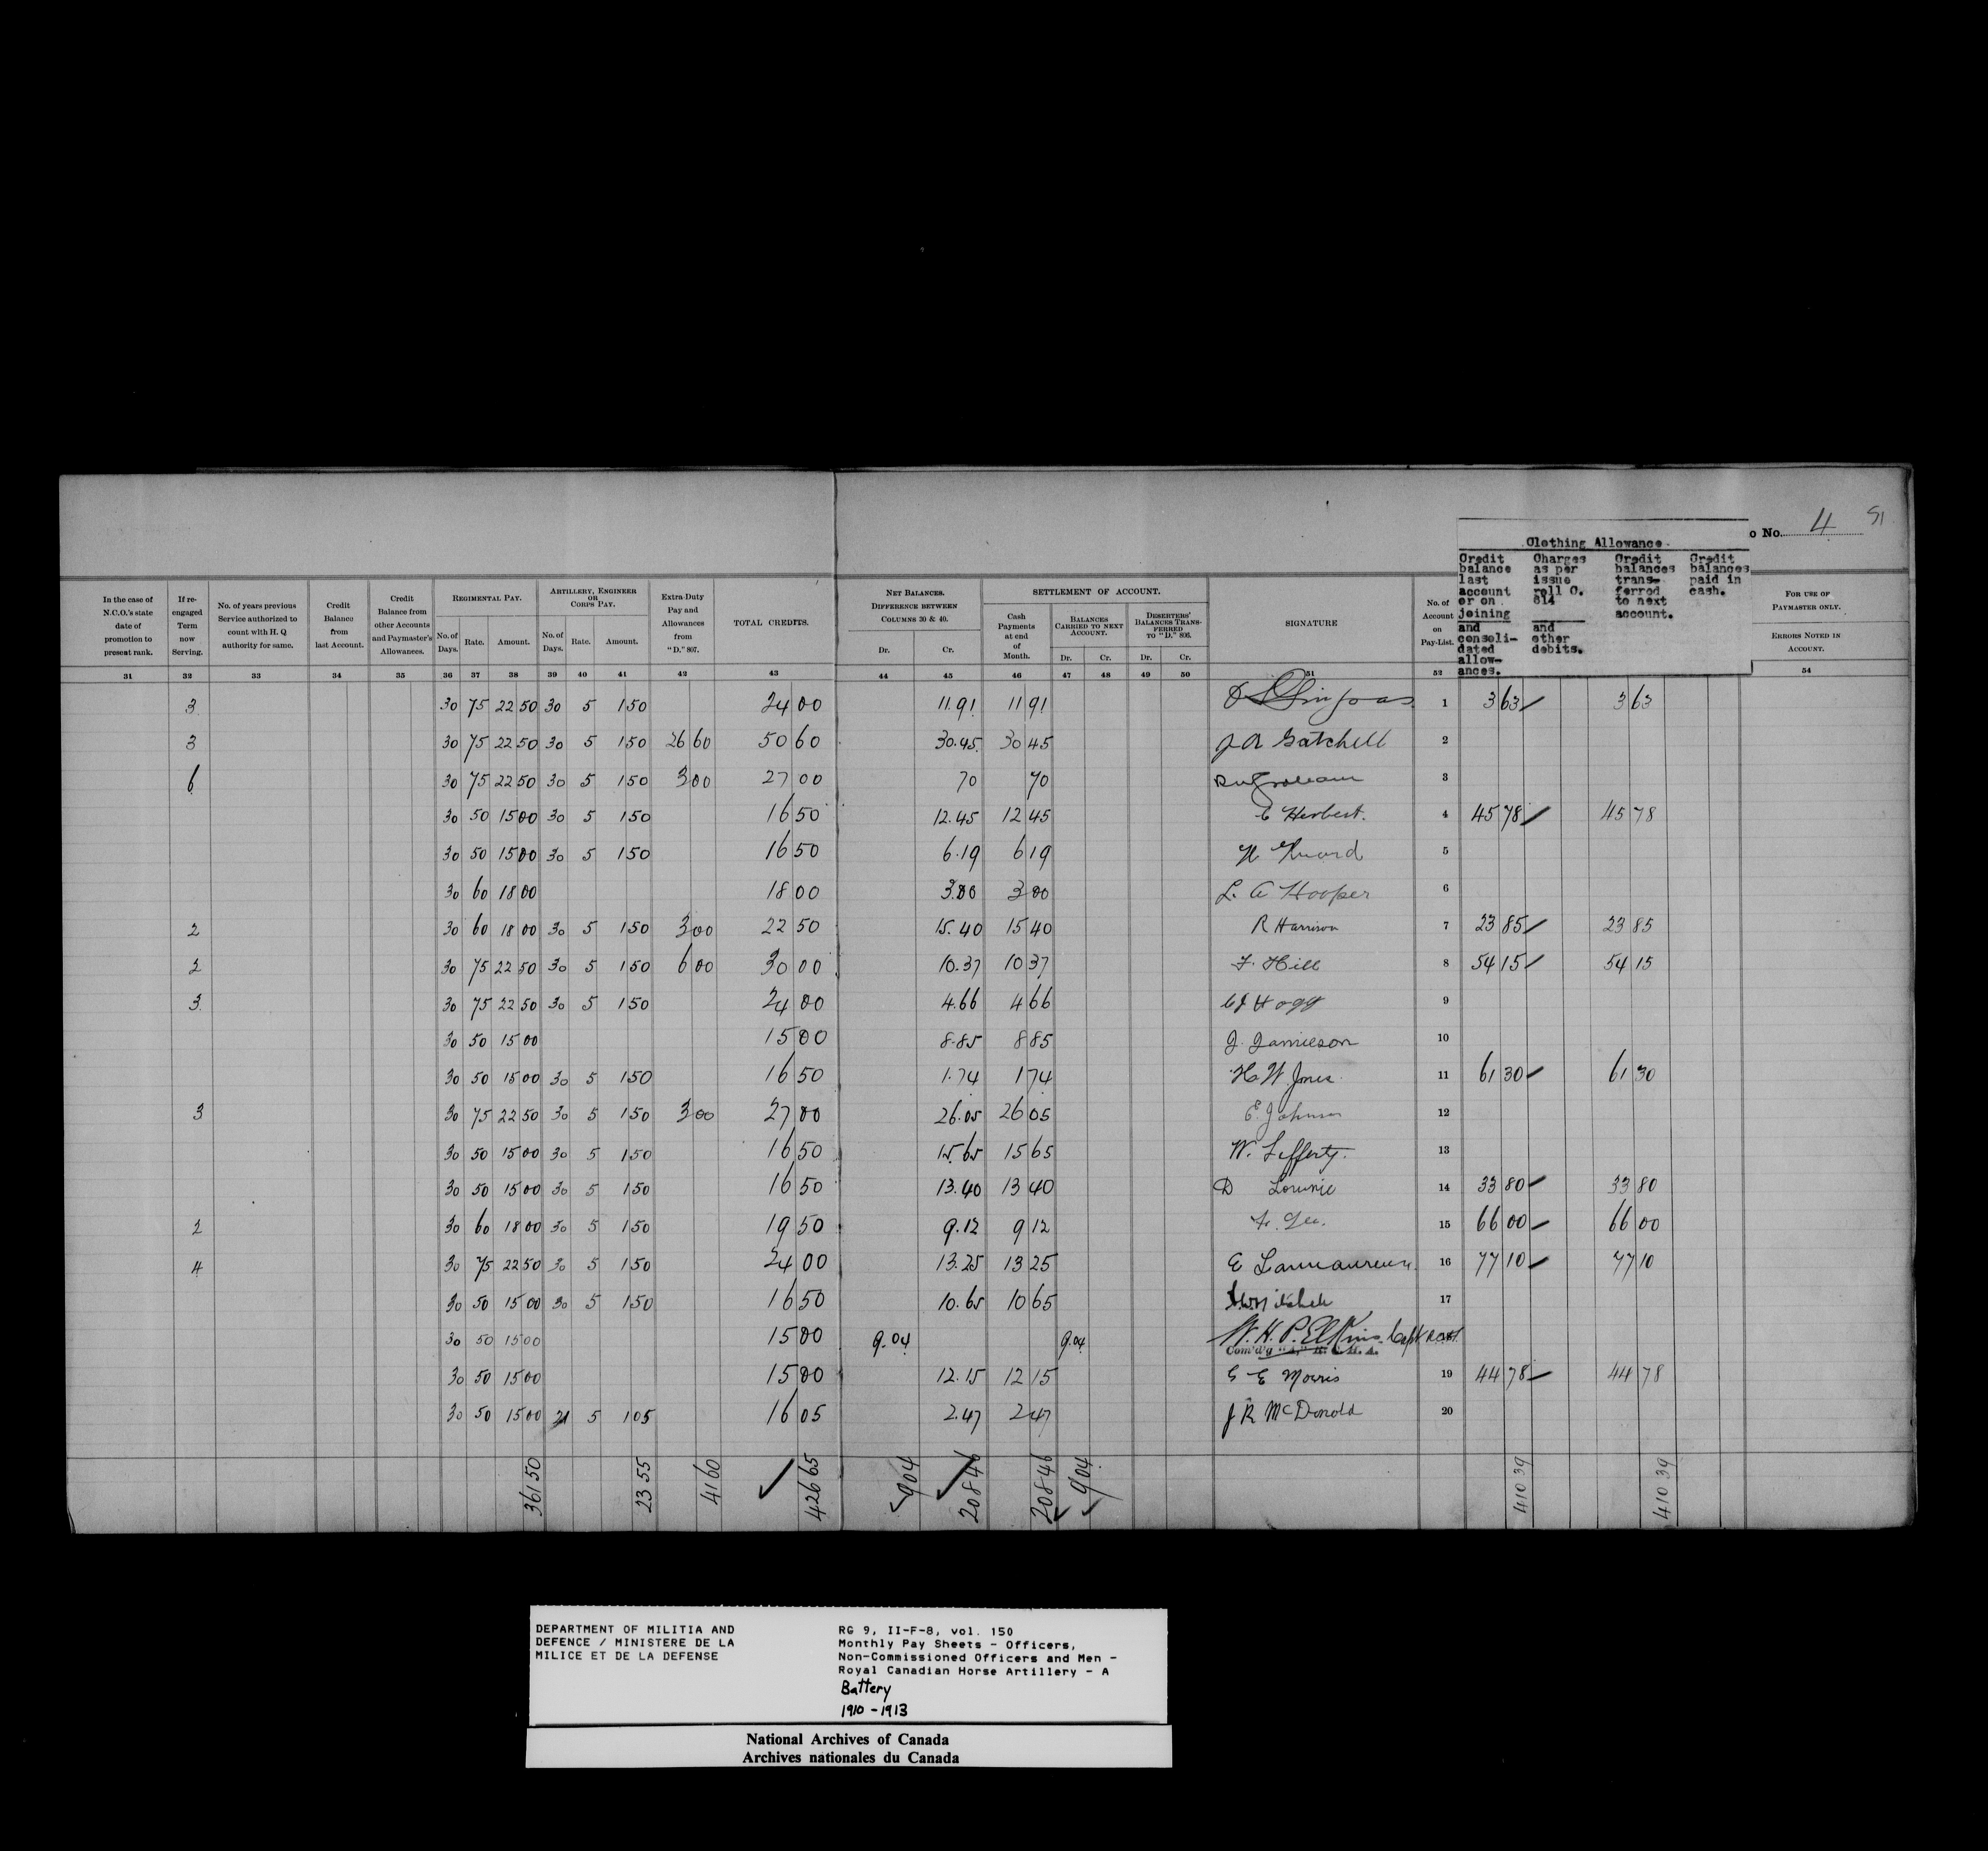 o No. 4 51
Clothing Allowance.
Credit balance last account or on joining and consoli-dated allow-ances.
Charges as per issue roll C. 814 and other debits.
Credit balances trans-ferred to next account.
Credit balances paid in cash.
In the case of N.C.O.'s state date of promotion to present rank.
If re-engaged Term now Serving.
No. of years previous Service authorized to count with H. Q authority for same.
Credit Balance from last Account.
Credit Balance from other Accounts and Paymaster's Allowances.
REGIMENTAL PAY.
No. of Days. Rate. Amount.
ARTILLERY, ENGINEER OR CORPS PAY.
No. of Days. Rate. Amount.
Extra-Duty Pay and Allowances from "D." 807.
TOTAL CREDITS.
NET BALANCES. DIFFERENCE BETWEEN COLUMNS 30 & 40.
Dr. Cr.
SETTLEMENT OF ACCOUNT.
Cash Payments at end of Month.
BALANCES CARRIED TO NEXT ACCOUNT.
Dr. Cr.
DESERTERS' BALANCES TRANS-FERRED TO "D." 806.
Dr. Cr.
SIGNATURE
No. of Account on Pay-List.
FOR USE OF PAYMASTER ONLY.
ERRORS NOTED IN ACCOUNT.
31 32 33 34 35 36 37 38 39 40 41 42 43 44 45 46 47 48 49 50 51 52 54
3 30 75 22 50 30 5 1 50 24 00 11.91 11 91 1 3 63 3 63
3 30 75 22 50 30 5 1 50 26 60 50 60 30.45 30 45 J A Gatchell 2
6 30 75 22 50 30 5 1 50 3 00 27 00 70 70 3
30 50 15 00 30 5 1 50 16 50 12.45 12 45 E Herbert. 4 45 78 45 78
30 50 15 00 30 5 1 50 16 50 6.19 6 19 5
30 60 18 00 18 00 3.00 3 00 L. A Hooper 6
2 30 60 18 00 30 5 1 50 3 00 22 50 15.40 15 40 R Harrison 7 23 85 23 85
2 30 75 22 50 30 5 1 50 6 00 30 00 10.37 10 37 F. Hill 8 54 15 54 15
3 30 75 22 50 30 5 1 50 24 00 4.66 4 66 C J Hogg 9
30 50 15 00 15 00 8.85 8 85 J. Jamieson 10
30 50 15 00 30 5 1 50 16 50 1.74 1 74 H. W Jones 11 61 30 61 30
3 30 75 22 50 30 5 1 50 3 00 27 00 26.05 26 05 E. Johnson 12
30 50 15 00 30 5 1 50 16 50 15.65 15 65 W. Lafferty. 13
30 50 15 00 30 5 1 50 16 50 13.40 13 40 D 14 33 80 33 80
2 30 60 18 00 30 5 1 50 19 50 9.12 9 12 F. Lee. 15 66 00 66 00
4 30 75 22 50 30 5 1 50 24 00 13.25 13 25 E 16 77 10 77 10
30 50 15 00 30 5 1 50 16 50 10.65 10 65 17
30 50 15 00 15 00 9.04 9.04 W. H. P. Elkins. Capt RCHA
Com'd'g "A," R. C. H. A.
30 50 15 00 15 00 12.15 12 15 G E Morris 19 44 78 44 78
30 50 15 00 21 5 1 05 16 05 2.47 2 47 J R McDonald 20
361 50 23 55 41 60 426 65 9 04 208 46 208 46 9 04 410 39 410 39
DEPARTMENT OF MILITIA AND
DEFENCE / MINISTERE DE LA
MILICE ET DE LA DEFENSE
RG 9, II-F-8, vol. 150
Monthly Pay Sheets - Officers,
Non-Commissioned Officers and Men -
Royal Canadian Horse Artillery - A
Battery
1910 - 1913
National Archives of Canada
Archives nationales du Canada